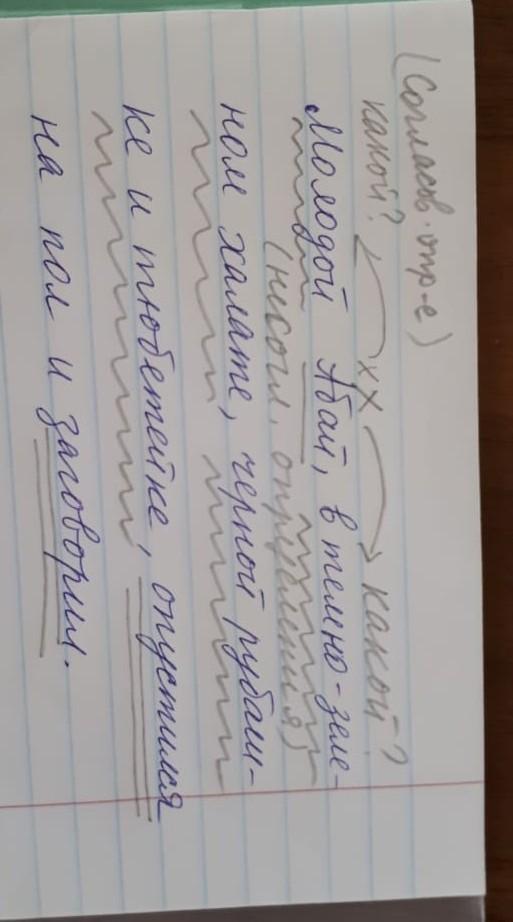 (Согласов. опр-е)
какой? х х какой?
Молодой Абай, в темно-зеле-
(несогл. определения)
ном халате, черной рубаш-
ке и тюбетейке, опустился
на пол и заговорил.